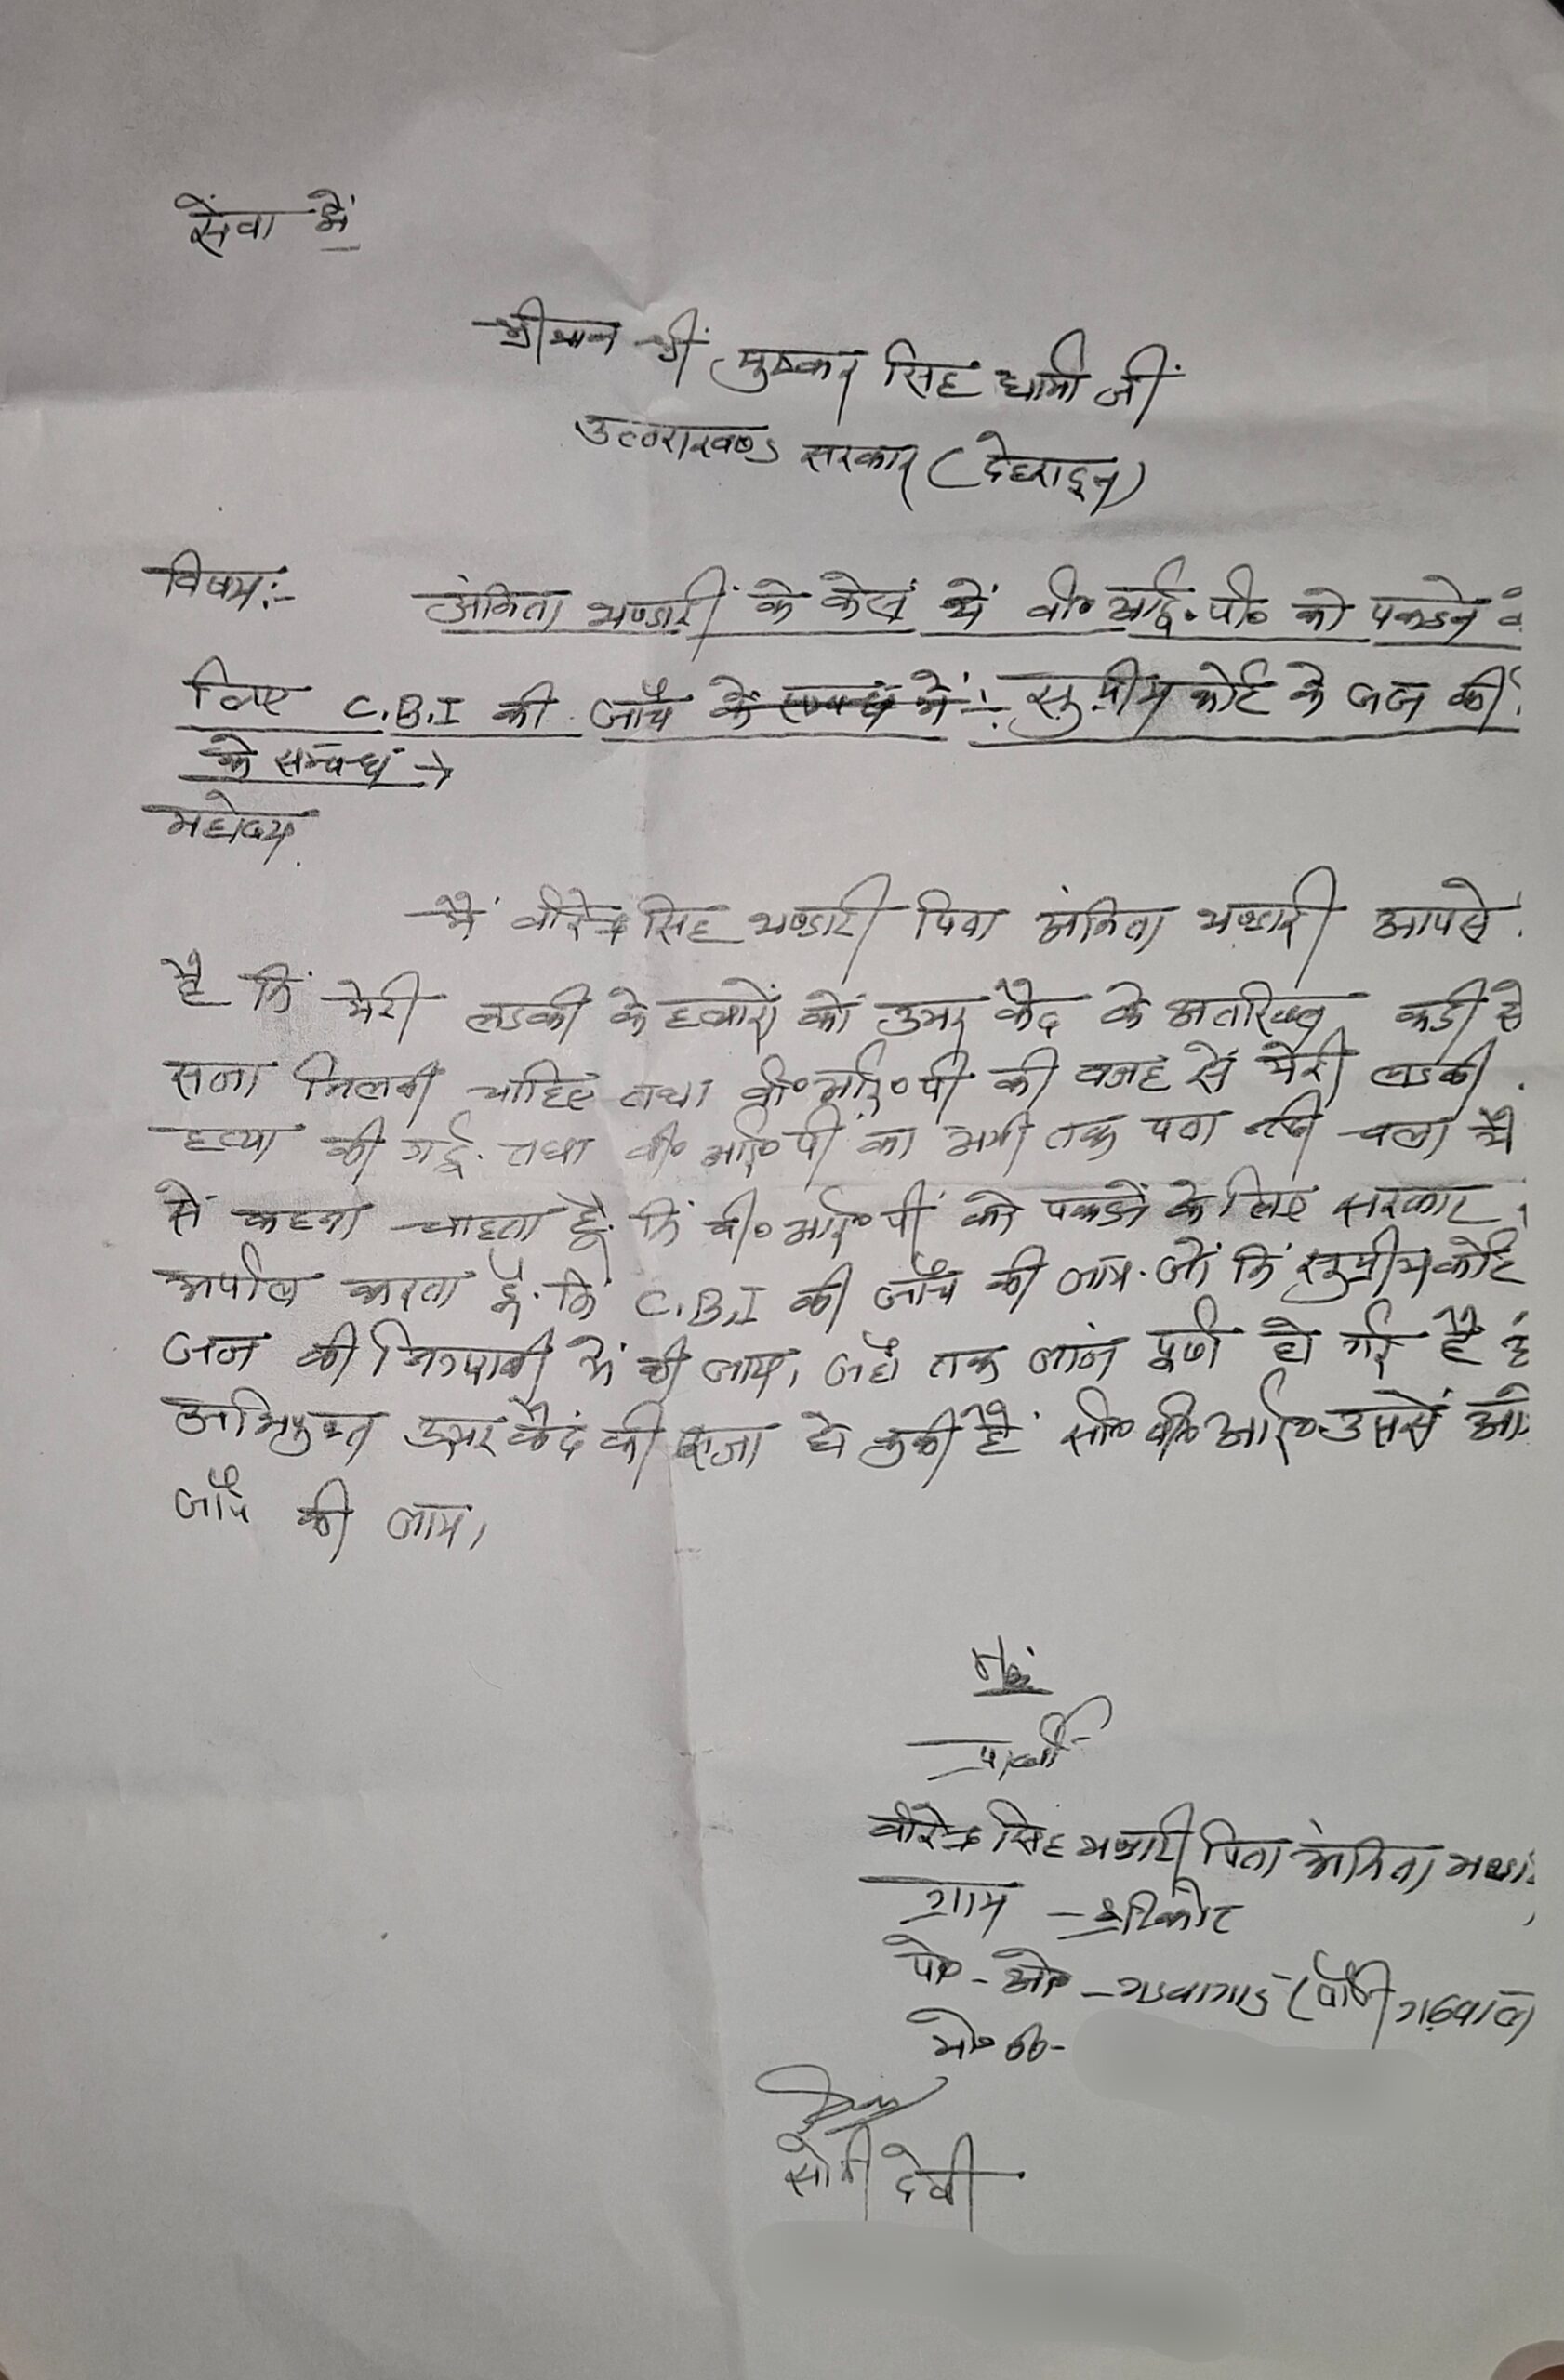 सेंवा में
श्रीमान श्रीं पुष्कर सिंह धामी जीं
उत्तराखण्ड सरकार (देहरादून)
विषय:- अंकिता भण्डारीं के केस में वी० आई०पी० को पकडने
लिए C.B.I की जाँच के सम्बन्ध में :- सुप्रीम कोर्ट के जज की
के सम्बन्ध →
महोदय,
मैं वीरेन्द्र सिंह भण्डारी पिता अंकिता भण्डारी आपसे
है किं मेरी लडकी के हत्यारों कों उमर कैद के अतरिक्त कडी से
सजा मिलनी चाहिए तथा वी०आई०पी की वजह सें मेरी लडकी
हत्या की गई. तथा वी० आई०पी का अभी तक पता नही चला मै
सें कहना चाहता हूँ. किं वी०आई०पीं को पकडनें के लिए सरकार
अपील करता हूँ. किं C.B.I की जाँच की जाय. जों किं सुप्रीम कोर्ट
जज की निगरानी में की जाय, जहाँ तक जांच पूर्ण हो गई है
अभियुक्त उमर कैद की सजा हो चुकी है सी० बी० आई० उससें आ
जाँच की जाय,
प्रार्थी
वीरेन्द्र सिंह भण्डारी पिता अंकिता
ग्राम -
पो० - ओ० - (पौडी गढ़वाल)
मो० नं०-
सोनी देवी